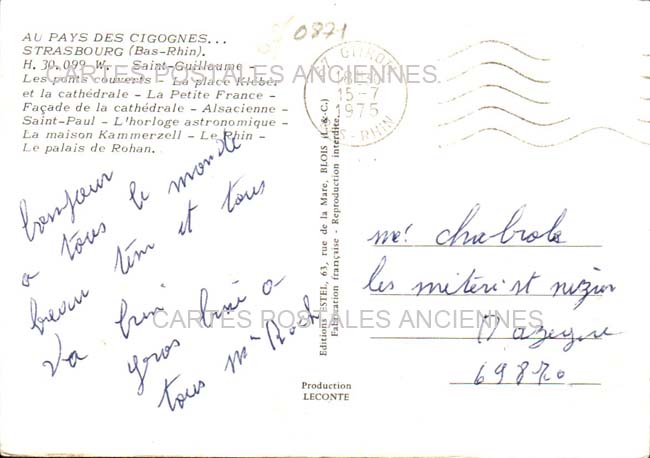 0871
AU PAYS DES CIGOGNES...
STRASBOURG (Bas-Rhin).
H. 30.099 W. - Saint-Guillaume -
Les ponts couverts - La place Kléber
et la cathédrale - La Petite France -
Façade de la cathédrale - Alsacienne -
Saint-Paul - L'horloge astronomique -
La maison Kammerzell - Le Rhin -
Le palais de Rohan.
CARTES POSTALES ANCIENNES
15-7
1975
RHIN
bonjour
a tous le monde
beau tem et tous
va bien
gros bisé a
tous me Roch
Editions ESTEL, 63, rue de la Mare, BLOIS (L.-&-C.)
Fabrication française - Reproduction interdite.
Production
LECONTE
me! chabrole
les miteri st nizier
D'azergue
69870
CARTES POSTALES ANCIENNES